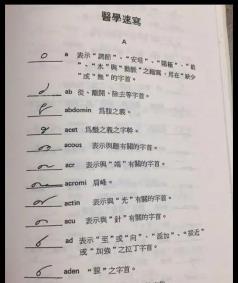 醫學速寫
A
a 表示“調節”、“安培”、“陽極”、“前
”、“水”與“動脈”之縮寫，用在“缺少
”或“無”的字首。
ab 從、離開、除去等字首。
abdomin 為腹之義。
acet 為醋之義之字幹。
acous 表示與聽有關的字首。
acr 表示與“端”有關的字首。
acromi 肩峰。
actin 表示與“光”有關的字首。
acu 表示與“針”有關的字首。
ad 表示“至”或“向”、“添加”、“接近”
或“加強”之拉丁字首。
aden “腺”之字首。